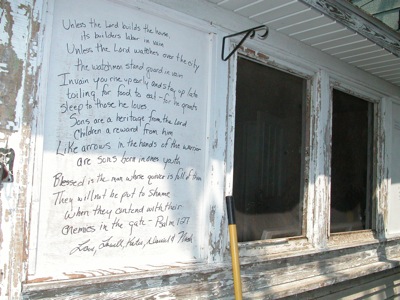 Unless the Lord builds the house,
its builders labor in vain
Unless the Lord watches over the city
the watchman stand guard in vain
In vain you rise up early and stay up late
toiling for food to eat - for he grants
sleep to those he loves.
Sons are a heritage from the Lord
Children a reward from him
Like arrows in the hands of the warrior
are sons born in ones youth
Blessed is the man whose quiver is full of them
They will not be put to shame
when they contend with their
enemies in the gate - Psalm 127
Love,